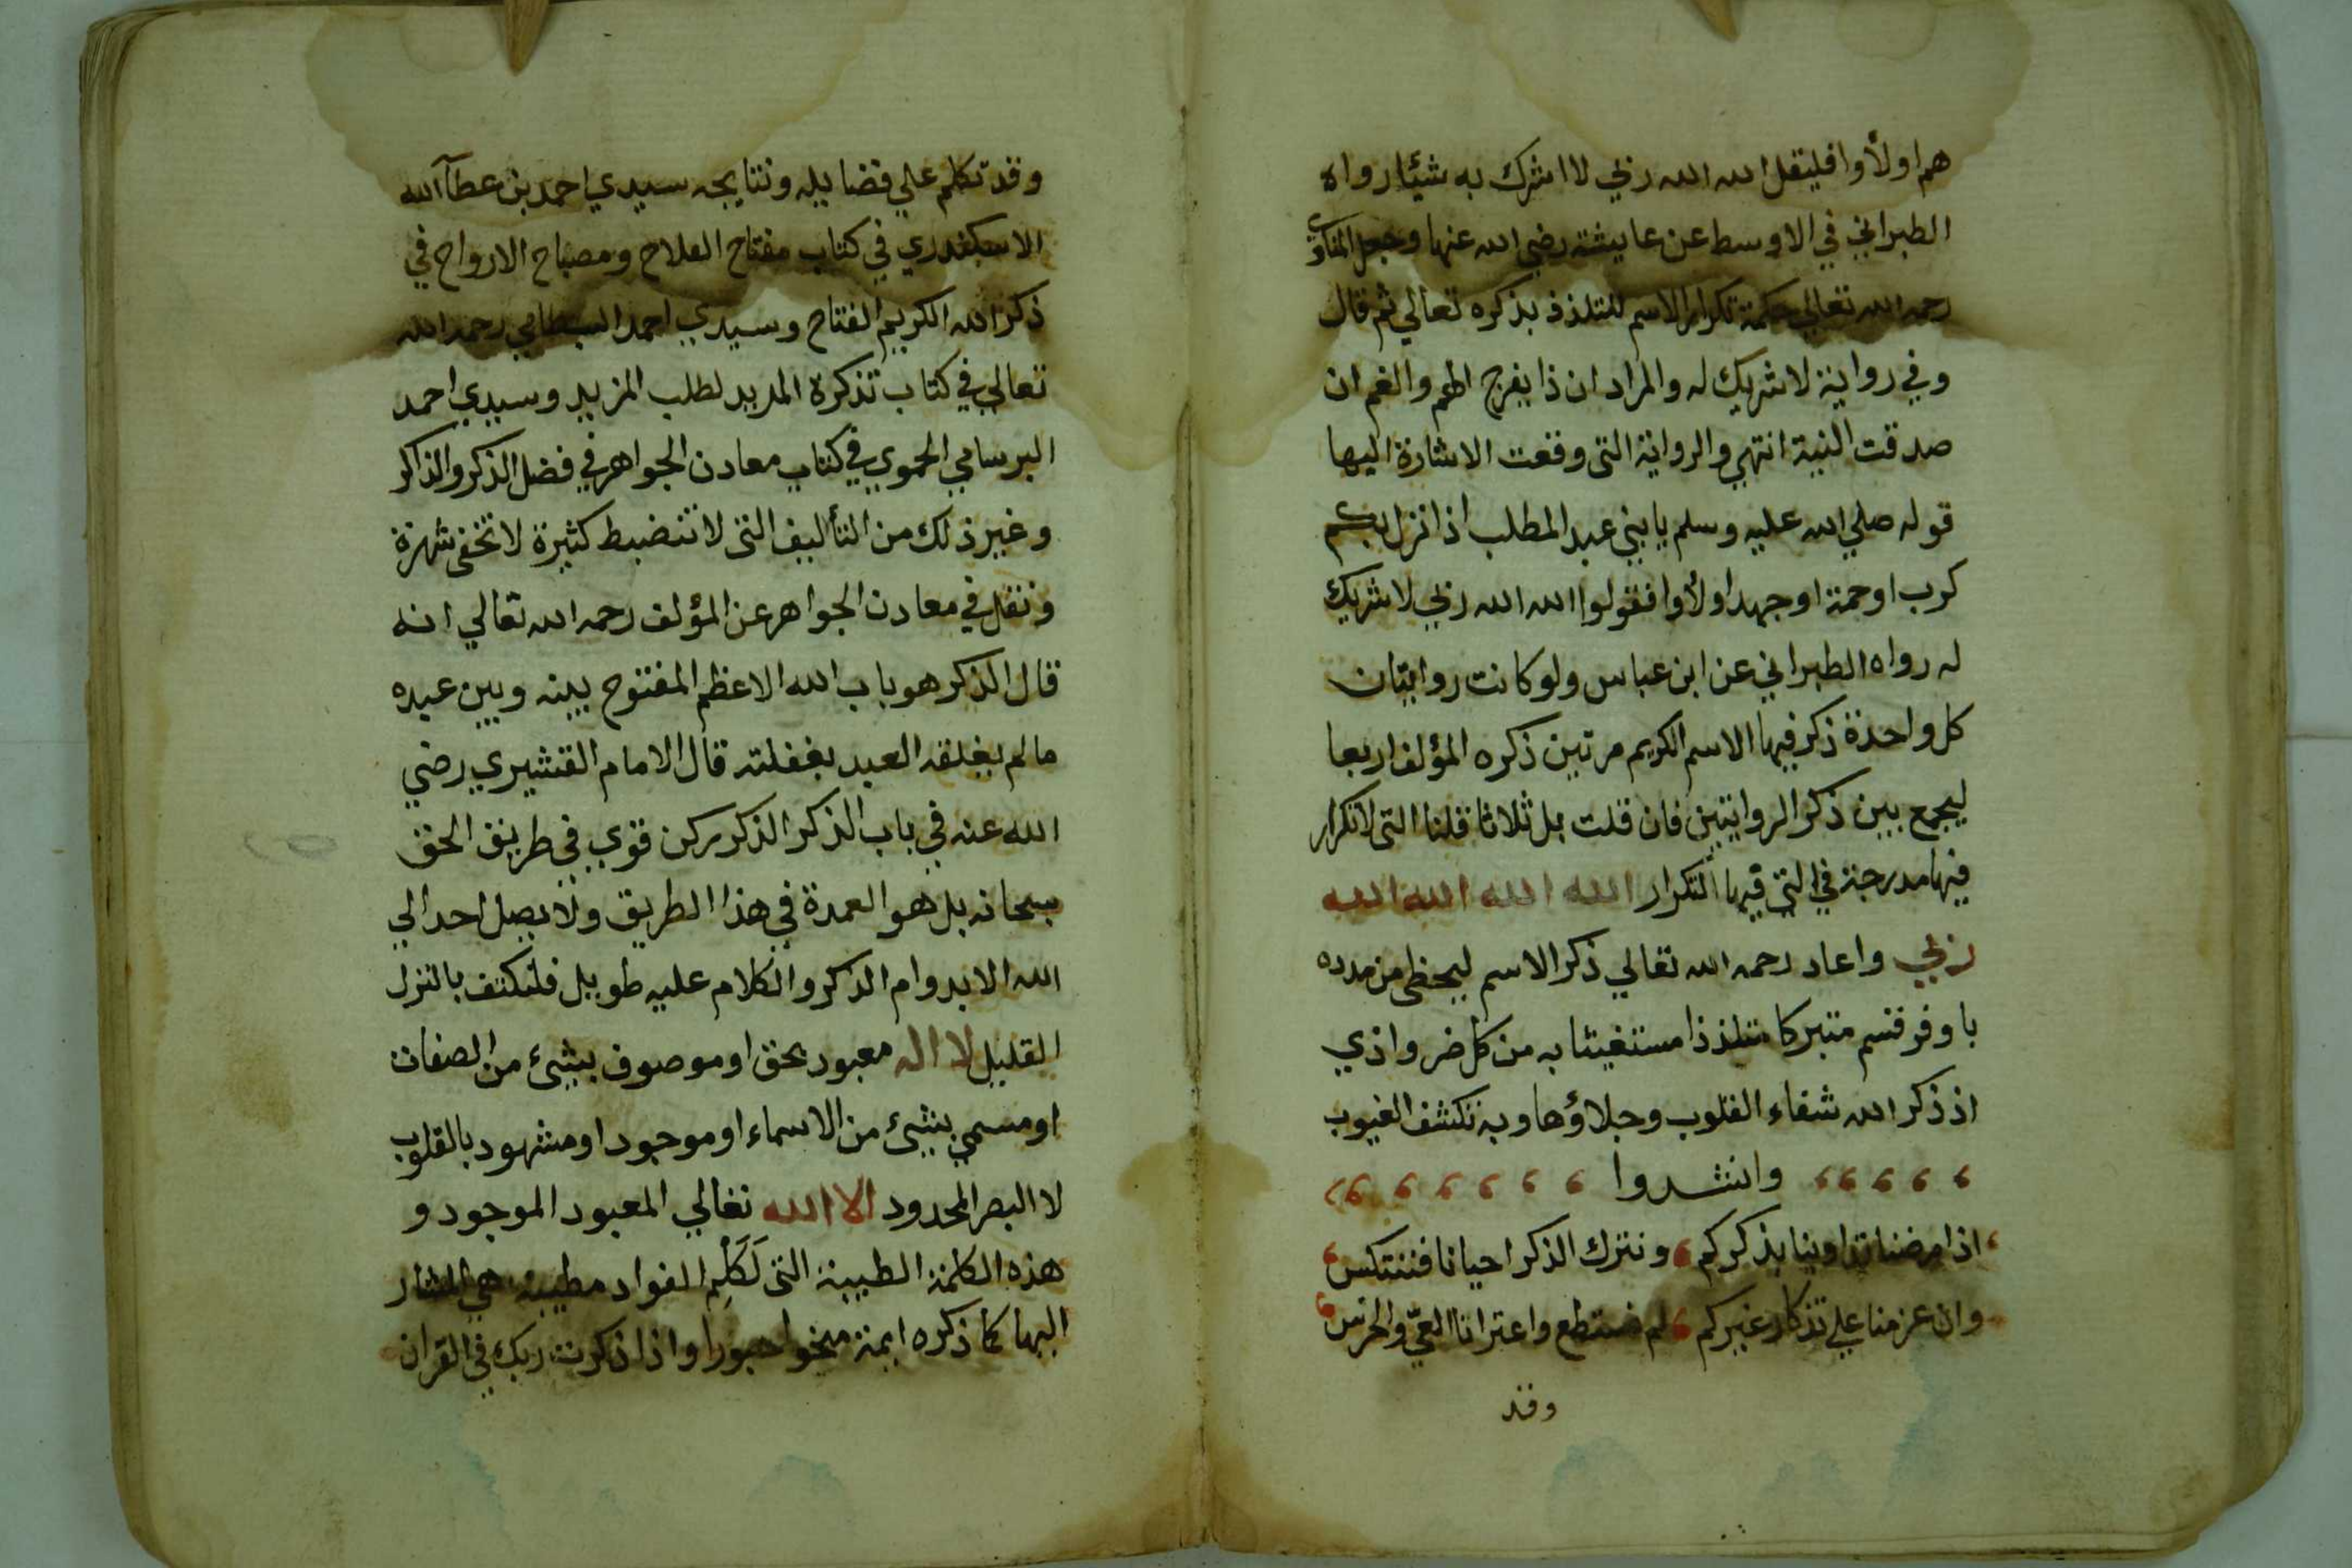 هم اولأوا فليقل الله الله ربي لا اشرك به شيئا رواه
الطبراني في الاوسط عن عايشة رضي الله عنها وجعل المناوي
رحمه الله تعالي حكمة تكرار الاسم للتلذذ بذكره تعالي ثم قال
وفي رواية لا شريك له والمراد ان ذا يفرج الهم والغم ان
صدقت النية انتهي والرواية التى وقعت الاشارة اليها
قوله صلي الله عليه وسلم يا بني عبد المطلب اذا نزل بكم
كرب او حمة او جهد او لأوا فقولوا الله الله ربي لا شريك
له رواه الطبراني عن ابن عباس ولو كانت روايتان
كل واحدة ذكر فيها الاسم الكريم مرتين ذكره المؤلف اربعا
ليجمع بين ذكر الروايتين فان قلت بل ثلاثا قلنا التى لا تكرار
فيها مدرجة في التي فيها التكرار الله الله الله الله
ربي واعاد رحمه الله تعالي ذكر الاسم ليحظي من مدده
باوفر قسم متبركا متلذذا مستغيثا به من كل ضر واذي
اذ ذكر الله شفاء القلوب وجلاؤها وبه تكشف الغيوب
وانشدوا
اذا مرضنا تداوينا بذكركم ونترك الذكر احيانا فننتكس
وان عزمنا علي تذكار غيركم لم نستطع واعترانا العيّ والخرس
وقد
وقد تكلم علي فضايله ونتايجه سيدي احمد بن عطآ الله
الاسكندري في كتاب مفتاح الفلاح ومصباح الارواح في
ذكر الله الكريم الفتاح وسيدي احمد البسطامي رحمه الله
تعالي في كتاب تذكرة المريد لطلب المزيد وسيدي احمد
البرسامي الحموي في كتاب معادن الجواهر في فضل الذكر والذاكر
وغير ذلك من التأليف التى لا تنضبط كثيرة لا تخفى شهرة
ونقل في معادن الجواهر عن المؤلف رحمه الله تعالي انه
قال الذكر هو باب الله الاعظم المفتوح بينه وبين عبده
مالم يغلقه العبد بغفلته قال الامام القشيري رضي
الله عنه في باب الذكر الذكر ركن قوي في طريق الحق
سبحانه بل هو العمدة في هذا الطريق ولا يصل احد الي
الله الا بدوام الذكر والكلام عليه طويل فلنكتف بالنزل
القليل لا اله معبود بحق او موصوف بشيئ من الصفات
او مسمي بشيئ من الاسماء او موجود او مشهود بالقلوب
لا البصر المحدود الا الله تعالي المعبود الموجود و
هذه الكلمة الطيبة التى لَكَلِم الفواد مطيبة هي المشار
اليها كما ذكره ايمة منحوا حبورا واذا ذكرت ربك في القران